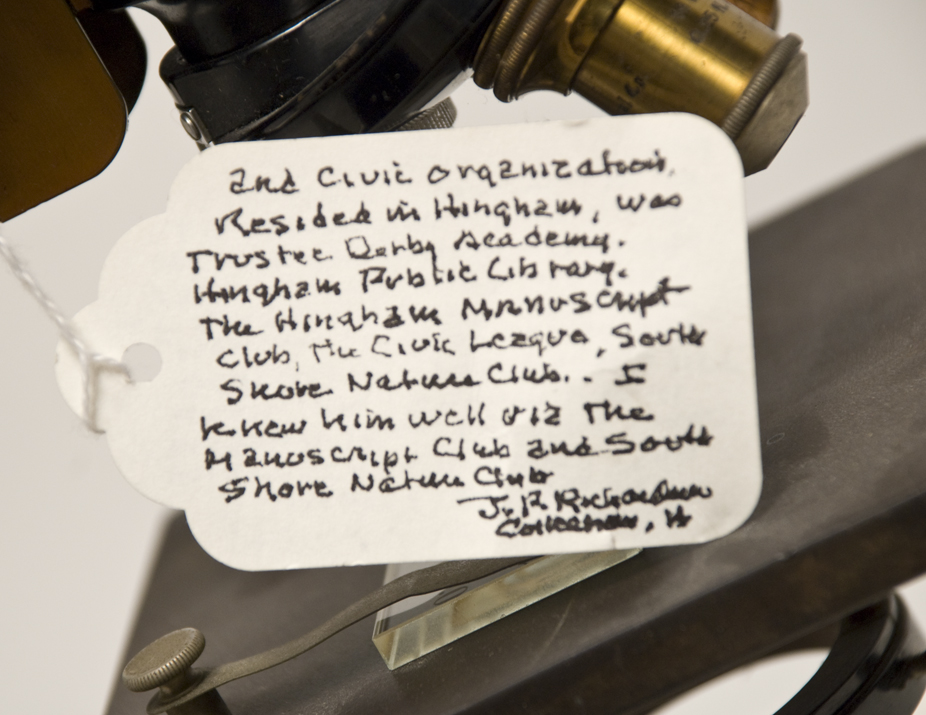 and Civic organizations.
Resided in Hingham, was
Trustee Derby Academy.
Hingham Public Library.
The Hingham Manuscript
Club, The Civic League, South
Shore Nature Club.. I
knew him well via The
Manuscript Club and South
Shore Nature Club
J. P. Richardson